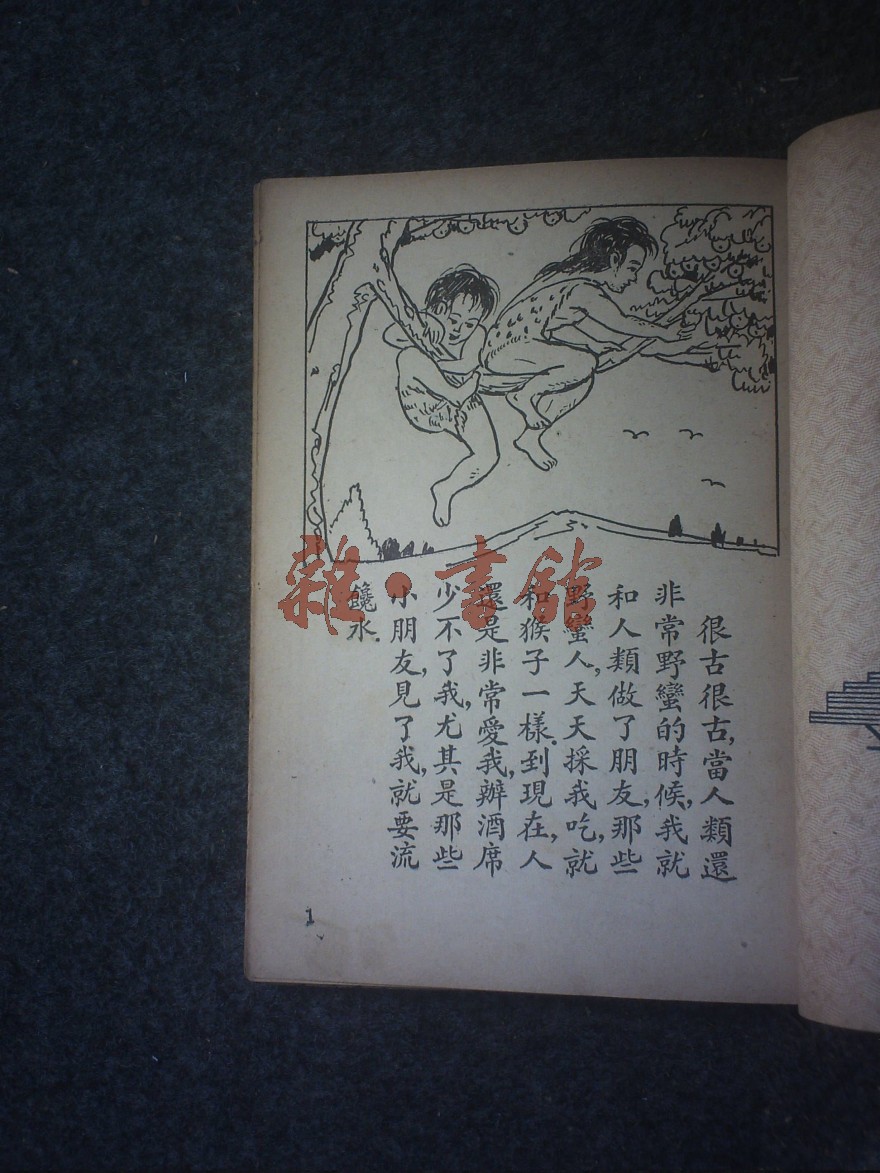 很古很古，當人類還
非常野蠻的時候，我就
和人類做了朋友，那些
野蠻人，天天採我吃，就
和猴子一樣．到現在，人
還是非常愛我，辦酒席
少不了我，尤其是那些
小朋友，見了我，就要流
饞水．
1
雜·書館